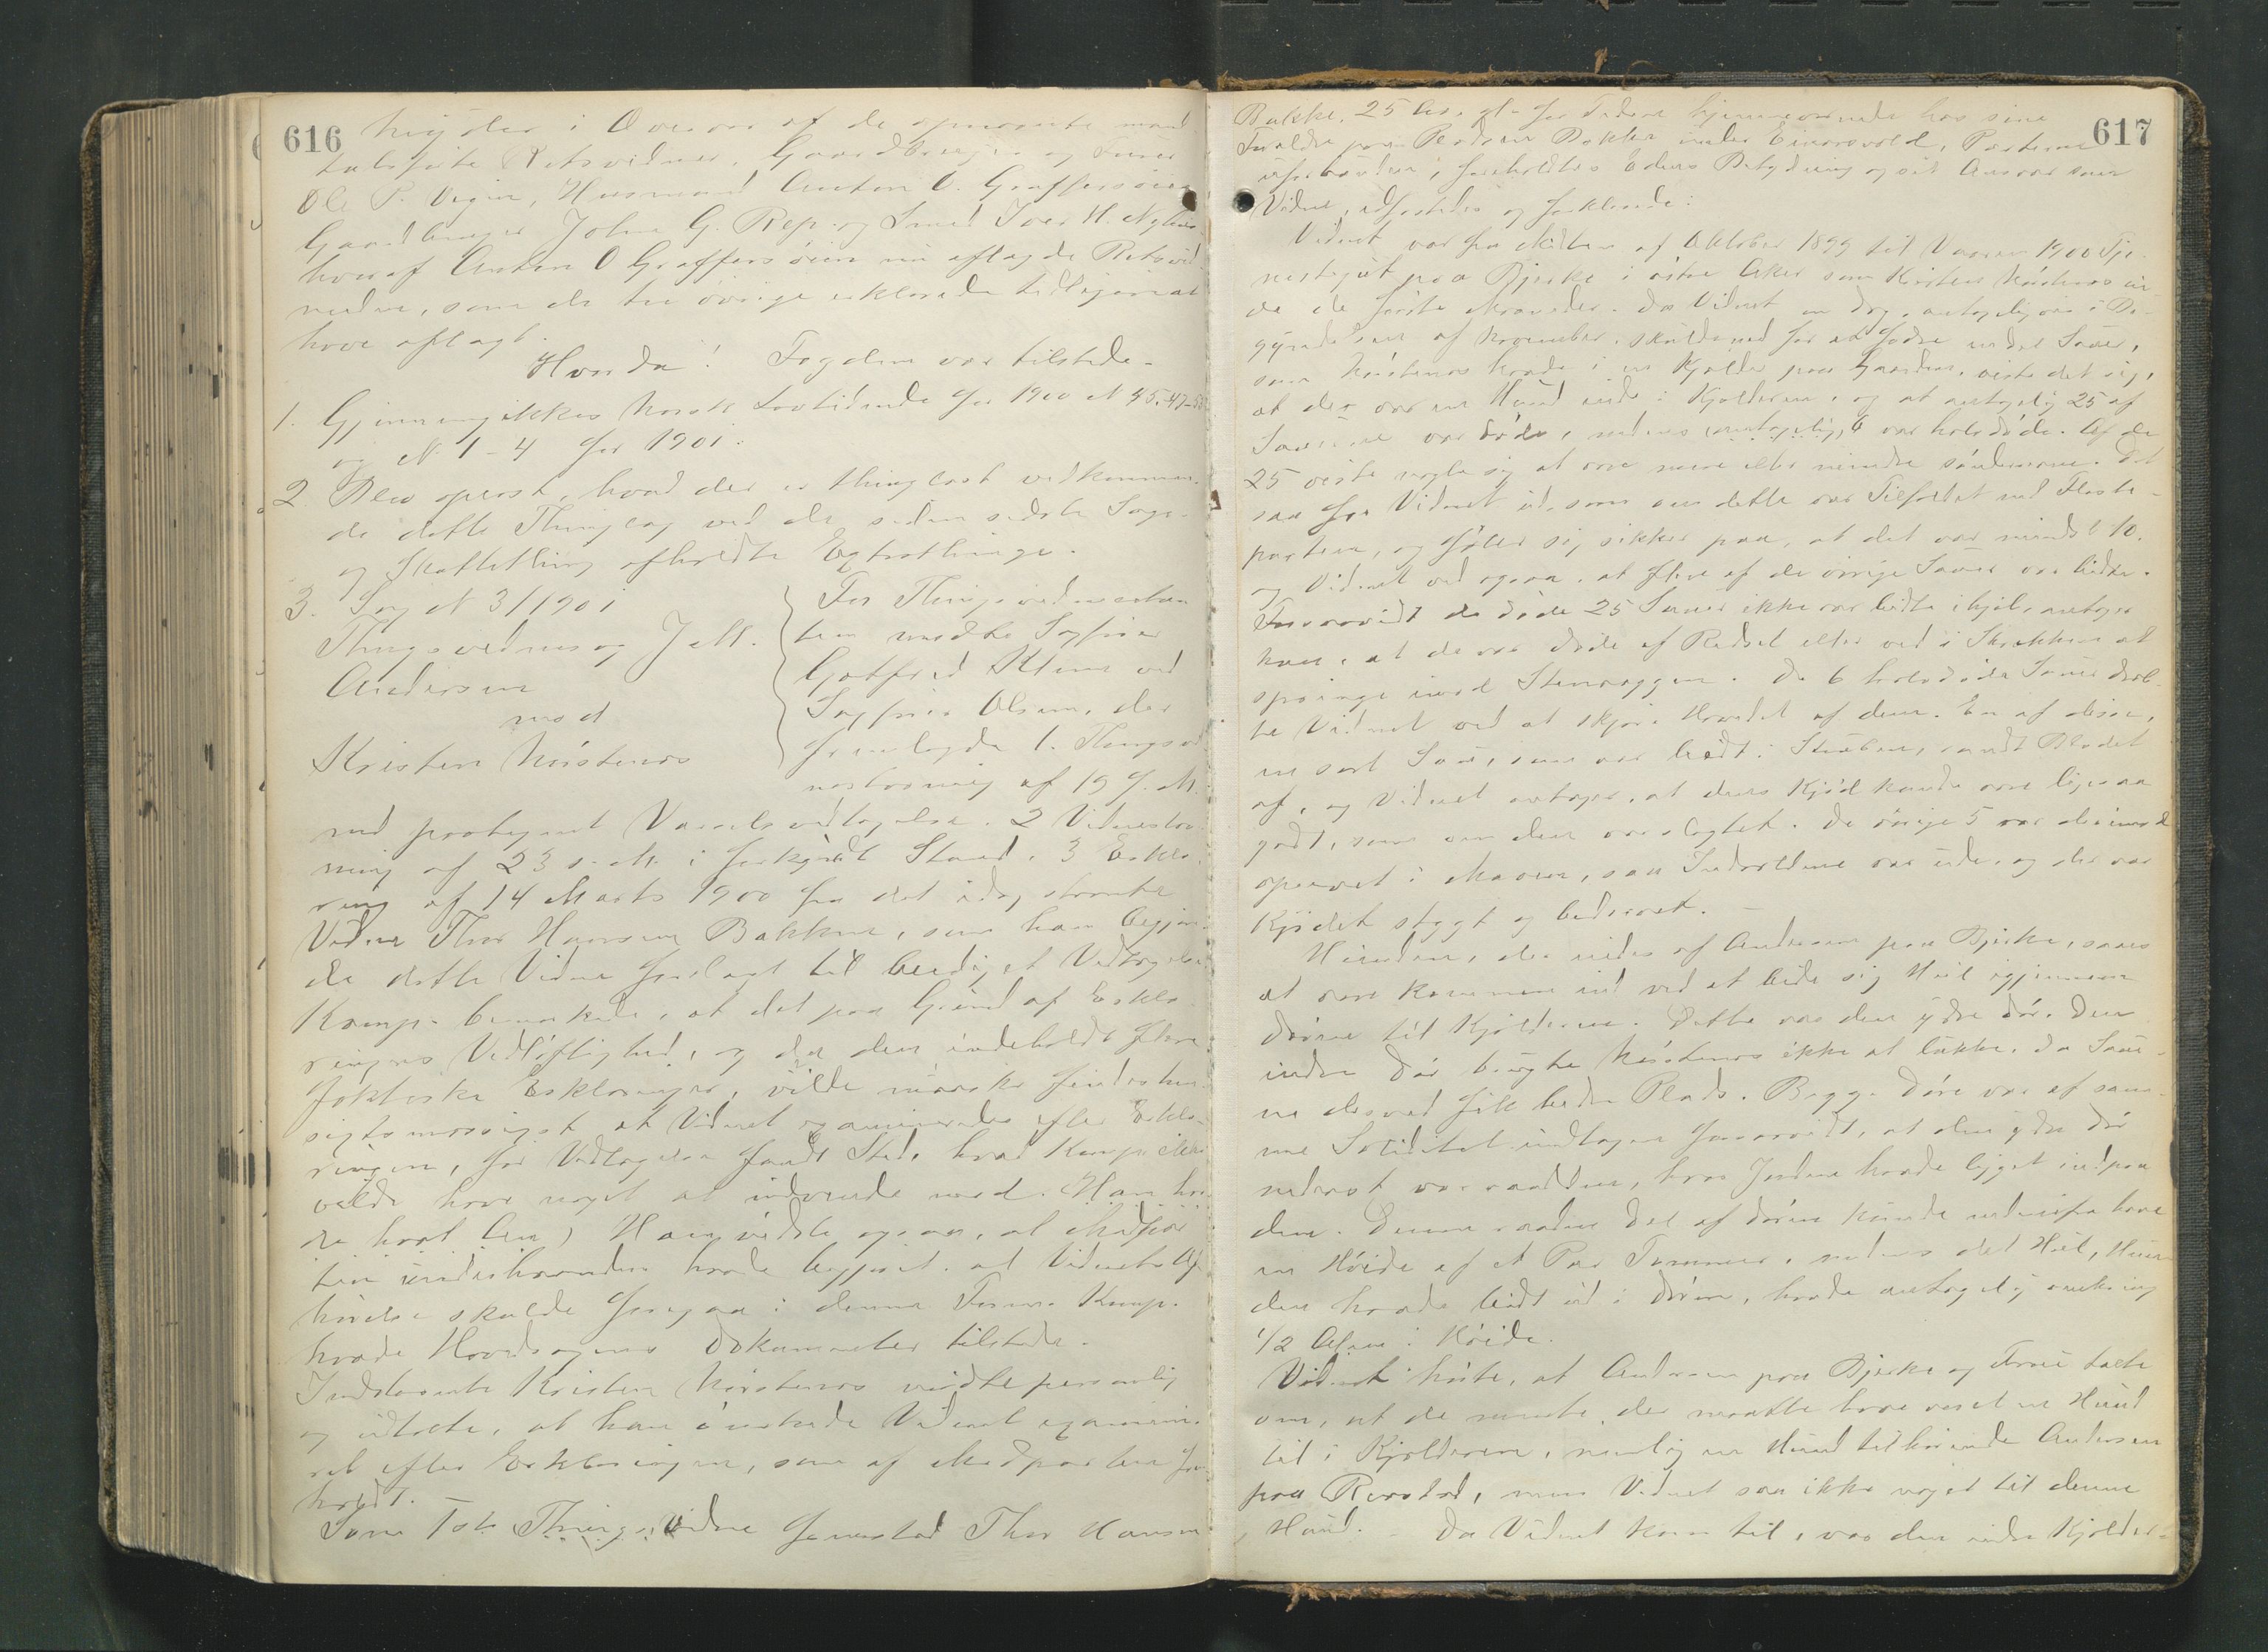 616
i Overvær af de opnævnte mand
talsførte Retsvidner, Gaardbruger og
Ole P. Vigen, Husmand Anton O. Graffersøien
Gaardbruger Johs G. Rep. og Smed Iver H.
hvoraf Anton O Graffersøien nu aflagde Retsvid-
som de tre øvrige erklærede tidligere at
have aflagt.
Hvorda! Fogden var tilstede.
1. Gjennemgikkes Norsk Lovtidende for 1900 N 45-47-
og N. 1-4 for 1901.
2. Blev oplæst, hvad der er thinglæst vedkommen-
de dette Thinglag ved de siden sidste Sage-
og Skattething afholdte Extrathinge.
3. Sag N 3/1901
Thingsvidnesag J. M.
Andersen
mod
Kristen Nøstenæs
For Thingsvidnesøkeren
mødte Sagfører
Gotfred Klem ved
Sagfører Olsen, der
fremlagde 1. Thingsvid
nestævning af 19 f. M.
med paategnet Varselsvedtagelse. 2 Vidnestæv-
ning af 23 s. M. i forkyndt Stand. 3 Erklæ-
ring af 14 Marts 1900 fra det idag stævnte
Vidne Thor Hansen Bakken, som han begjær-
de dette Vidne forelagt til beediget Vedtagelse.
Komp. bemærkede, at det paa Grund af Erklæ-
ringens Vidløftighed, og da den indeholdt flere
faktiske Erklæringer, vilde maaske findes hen-
sigtsmæssigst at Vidnet examineredes efter Erklæ-
ringen, før Vedtagelse fandt Sted, hvad Komp. ikke
vilde have noget at indvende mod. Han
Han vidste ogsaa, at Modpar
ten underhaanden havde begjæret, at Vidnets Af-
hørelse skulde foregaa i denne Form. Komp.
havde Hovedsagens Dokumenter tilstede.
Indstævnte Kristen Nøstenæs mødte personlig
og udtalte, at han ønskede Vidnet examine-
ret efter Erklæringen, som af Modparten fore
holdt.
Som 1ste Thingsvidne fremstod Thor Hansen
617
Bakke, 25 Aar gl. for Tiden hjemmeværende hos sine
Forældre paa Pladsen Bakken under Einarsvold, Parterne
uforvandte; foreholdtes Edens Betydning og sit Ansvar som
Vidne, edfæstedes og forklarede:
Vidnet var fra Midten af Oktober 1899 til Vaaren 1900 Tje-
nestegut paa Bjerke i østre Aker som Kristen Nøstenæs ei-
de de første Maaneder. Da Vidnet en Dag, antagelig i Be-
gyndelsen af November, skulde ned for at fodre endel Sauer,
som Nøstenæs havde i en Kjelder paa Gaarden, viste det sig,
at der var en Hund inde i Kjelderen, og at antagelig 25 af
Sauerne var døde, medens antagelig 6 var halvdøde. Af de
25 viste nogle sig at være mere eller mindre sønderrevne. Det
saa for Vidnet ud, som om dette var Tilfældet med Fleste-
parten, og føler sig sikker paa, at det var mindst 10,
og Vidnet ved ogsaa, at flere af de øvrige Sauer var bidte.
Forsaavidt de døde 25 Sauer ikke var bidte ihjel, antager
han, at de var døde af Rædsel eller ved i Skrækken at
springe imod Stenvæggen. De 6 halvdøde Sauer dræb-
te Vidnet ved at skjære Hovedet af dem. En af disse,
en sort Sau, som var bidt i Struben, randt Blodet
af, og Vidnet antager, at dens Kjød kunde være ligesaa
godt, som om den var slagtet. De øvrige 5 var derimod
oprevet i Maven, saa Indvoldene var ude, og der var
Kjødet stygt og bedærvet. —
Hunden, der eiedes af Andersen paa Bjerke, saaes
at være kommen ind ved at bide sig Hul igjennem
Døren til Kjelderen. Dette var den ydre Dør. Den
indre Dør brugte Nøstenæs ikke at lukke, da Sauer-
ne derved fik bedre Plads. Begge Døre var af sam-
me Soliditet undtagen forsaavidt, at den ydre Dør
nederst var raadden, hvor Jorden havde ligget indpaa
den. Denne raadne Del af Døren kunde nedenfra have
en Høide af et Par Tommer, medens det Hul, Hun-
den havde bidt ud i Døren, havde antagelig omkring
1/2 Alen i Høide.
Vidnet hørte, at Andersen paa Bjerke og Frue talte
om, at de mente, der maatte have været en Hund
til i Kjelderen, nemlig en Hund tilhørende Andersen
paa Risløkka, men Vidnet saa ikke noget til denne
Hund. — Da Vidnet kom til, var den indre Kjelder-